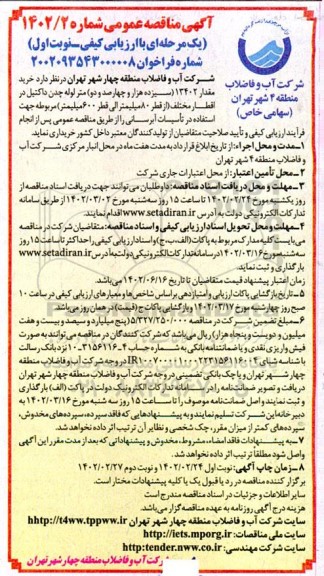 آگهی مناقصه عمومی شماره ۱۴۰۲/۲
(یک مرحله‌ای با ارزیابی کیفی_نوبت اول)
شماره فراخوان ۲۰۰۲۰۹۳۵۴۳۰۰۰۰۰۸
شرکت آب و فاضلاب
منطقه ۴ شهر تهران
(سهامی خاص)
شرکت آب و فاضلاب منطقه چهار شهر تهران در نظر دارد خرید
مقدار ۱۳۴۰۲ (سیزده هزار و چهارصد و دو) متر لوله چدن داکتیل در
اقطار مختلف (از قطر ۸۰ میلیمتر الی قطر ۶۰۰ میلیمتر) مربوطه جهت
استفاده در تأسیسات آبرسانی را از طریق مناقصه عمومی پس از انجام
فرآیند ارزیابی کیفی و تأیید صلاحیت متقاضیان از تولیدکنندگان معتبر داخل کشور خریداری نماید.
۱_مدت و محل اجراء: از تاریخ ابلاغ قرارداد به مدت هفت ماه در محل انبار مرکزی شرکت آب
و فاضلاب منطقه ۴ شهر تهران
۲_محل تأمین اعتبار: از محل اعتبارات جاری شرکت
۳_مهلت و محل دریافت اسناد مناقصه: داوطلبان می‌توانند جهت دریافت اسناد مناقصه از
روز یکشنبه مورخ ۱۴۰۲/۰۲/۲۴ تا ساعت ۱۵ روز سه‌شنبه مورخ ۱۴۰۲/۰۳/۰۲ از طریق سامانه
تدارکات الکترونیکی دولت به آدرس www.setadiran.ir اقدام نمایند.
۴_مهلت و محل تحویل اسناد ارزیابی کیفی و اسناد مناقصه: متقاضیان شرکت در مناقصه
می‌بایست کلیه مدارک مربوط به پاکات (الف، ب، ج) و اسناد ارزیابی کیفی را حداکثر تا ساعت ۱۵ روز
سه‌شنبه مورخ ۱۴۰۲/۰۳/۱۶ در سامانه تدارکات الکترونیکی دولت به آدرس www.setadiran.ir
بارگذاری و ثبت نمایند.
زمان اعتبار پیشنهاد قیمت متقاضیان تا تاریخ ۱۴۰۲/۰۶/۱۶ می‌باشد.
۵_تاریخ بازگشایی پاکات ارزیابی و امتیازدهی براساس شاخص‌ها و معیارهای ارزیابی کیفی در ساعت ۱۰
صبح روز چهارشنبه مورخ ۱۴۰۲/۰۳/۱۷ و بازگشایی پاکات ج (قیمت) در همان روز می‌باشد.
۶_مبلغ تضمین شرکت در مناقصه ۵/۳۲۷/۲۵۰/۰۰۰ (پنج میلیارد و سیصد و بیست و هفت
میلیون و دویست و پنجاه هزار) ریال می‌باشد که شرکت‌کنندگان در مناقصه می‌توانند به صورت
فیش واریزی نقدی و یا ضمانتنامه بانکی به شماره حساب
در وجه شرکت آب و فاضلاب منطقه
چهار شهر تهران و یا چک بانکی تضمینی در وجه شرکت آب و فاضلاب منطقه چهار شهر تهران
دریافت و تصویر ضمانتنامه را در سامانه تدارکات الکترونیک دولت در پاکت (الف) بارگذاری
و ثبت نمایند و اصل ضمانتنامه موصوف را تا ساعت ۱۵ روز سه‌شنبه مورخ ۱۴۰۲/۰۳/۱۶ به
دبیرخانه این شرکت تسلیم نمایند و به پیشنهادهایی که فاقد سپرده، سپرده‌های مخدوش،
سپرده‌های کمتر از میزان مقرر، چک شخصی و نظایر آن ترتیب اثر داده نخواهد شد.
۷_به پیشنهادات فاقد امضاء، مشروط، مخدوش و پیشنهاداتی که بعد از مدت مقرر این آگهی
واصل شود مطلقاً ترتیب اثر داده نخواهد شد.
۸_زمان چاپ آگهی: نوبت اول ۱۴۰۲/۰۲/۲۴ و نوبت دوم ۱۴۰۲/۰۲/۲۷
برگزار کننده مناقصه در رد یا قبول یک یا کلیه پیشنهادات مختار است.
سایر اطلاعات و جزئیات در اسناد مناقصه مندرج است
هزینه درج آگهی روزنامه به عهده مناقصه‌گزار می‌باشد.
سایت شرکت آب و فاضلاب منطقه چهار شهر تهران hhttp://t4ww.tppww.ir
سایت ملی مناقصات: http://iets.mporg.ir
سایت شرکت مهندسی: http:tender.nww.co.ir
شرکت آب و فاضلاب منطقه چهار شهر تهران